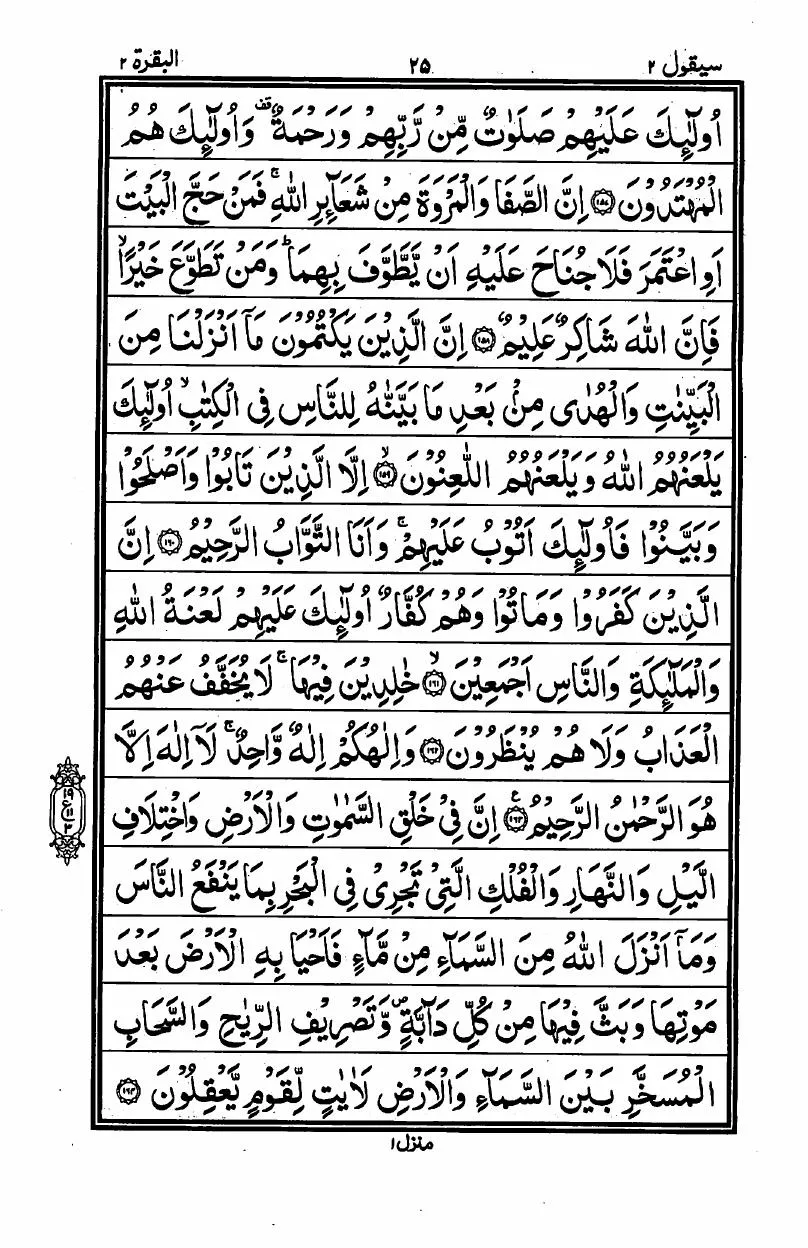 سيقول ٢ ٢٥ البقرة ٢
اُولٰٓئِكَ عَلَيْهِمْ صَلَوٰتٌ مِّنْ رَّبِّهِمْ وَرَحْمَةٌ ۟ وَاُولٰٓئِكَ هُمُ
الْمُهْتَدُوْنَ ۝١٥٧ اِنَّ الصَّفَا وَالْمَرْوَةَ مِنْ شَعَآئِرِ اللّٰهِ ۚ فَمَنْ حَجَّ الْبَيْتَ
اَوِ اعْتَمَرَ فَلَا جُنَاحَ عَلَيْهِ اَنْ يَّطَّوَّفَ بِهِمَا ؕ وَمَنْ تَطَوَّعَ خَيْرًا ۙ
فَاِنَّ اللّٰهَ شَاكِرٌ عَلِيْمٌ ۝١٥٨ اِنَّ الَّذِيْنَ يَكْتُمُوْنَ مَاۤ اَنْزَلْنَا مِنَ
الْبَيِّنٰتِ وَالْهُدٰى مِنْۢ بَعْدِ مَا بَيَّنّٰهُ لِلنَّاسِ فِى الْكِتٰبِ ۙ اُولٰٓئِكَ
يَلْعَنُهُمُ اللّٰهُ وَيَلْعَنُهُمُ اللّٰعِنُوْنَ ۝١٥٩ ۙ اِلَّا الَّذِيْنَ تَابُوْا وَاَصْلَحُوْا
وَبَيَّنُوْا فَاُولٰٓئِكَ اَتُوْبُ عَلَيْهِمْ ۚ وَاَنَا التَّوَّابُ الرَّحِيْمُ ۝١٦٠ اِنَّ
الَّذِيْنَ كَفَرُوْا وَمَاتُوْا وَهُمْ كُفَّارٌ اُولٰٓئِكَ عَلَيْهِمْ لَعْنَةُ اللّٰهِ
وَالْمَلٰٓئِكَةِ وَالنَّاسِ اَجْمَعِيْنَ ۝١٦١ ۙ خٰلِدِيْنَ فِيْهَا ۚ لَا يُخَفَّفُ عَنْهُمُ
الْعَذَابُ وَلَا هُمْ يُنْظَرُوْنَ ۝١٦٢ وَاِلٰهُكُمْ اِلٰهٌ وَّاحِدٌ ۚ لَاۤ اِلٰهَ اِلَّا
هُوَ الرَّحْمٰنُ الرَّحِيْمُ ۝١٦٣ ع اِنَّ فِىْ خَلْقِ السَّمٰوٰتِ وَالْاَرْضِ وَاخْتِلَافِ
١٩ ع ١١ ٣
الَّيْلِ وَالنَّهَارِ وَالْفُلْكِ الَّتِىْ تَجْرِىْ فِى الْبَحْرِ بِمَا يَنْفَعُ النَّاسَ
وَمَاۤ اَنْزَلَ اللّٰهُ مِنَ السَّمَآءِ مِنْ مَّآءٍ فَاَحْيَا بِهِ الْاَرْضَ بَعْدَ
مَوْتِهَا وَبَثَّ فِيْهَا مِنْ كُلِّ دَآبَّةٍ ۪ وَّتَصْرِيْفِ الرِّيٰحِ وَالسَّحَابِ
الْمُسَخَّرِ بَيْنَ السَّمَآءِ وَالْاَرْضِ لَاٰيٰتٍ لِّقَوْمٍ يَّعْقِلُوْنَ ۝١٦٤
منزل ١